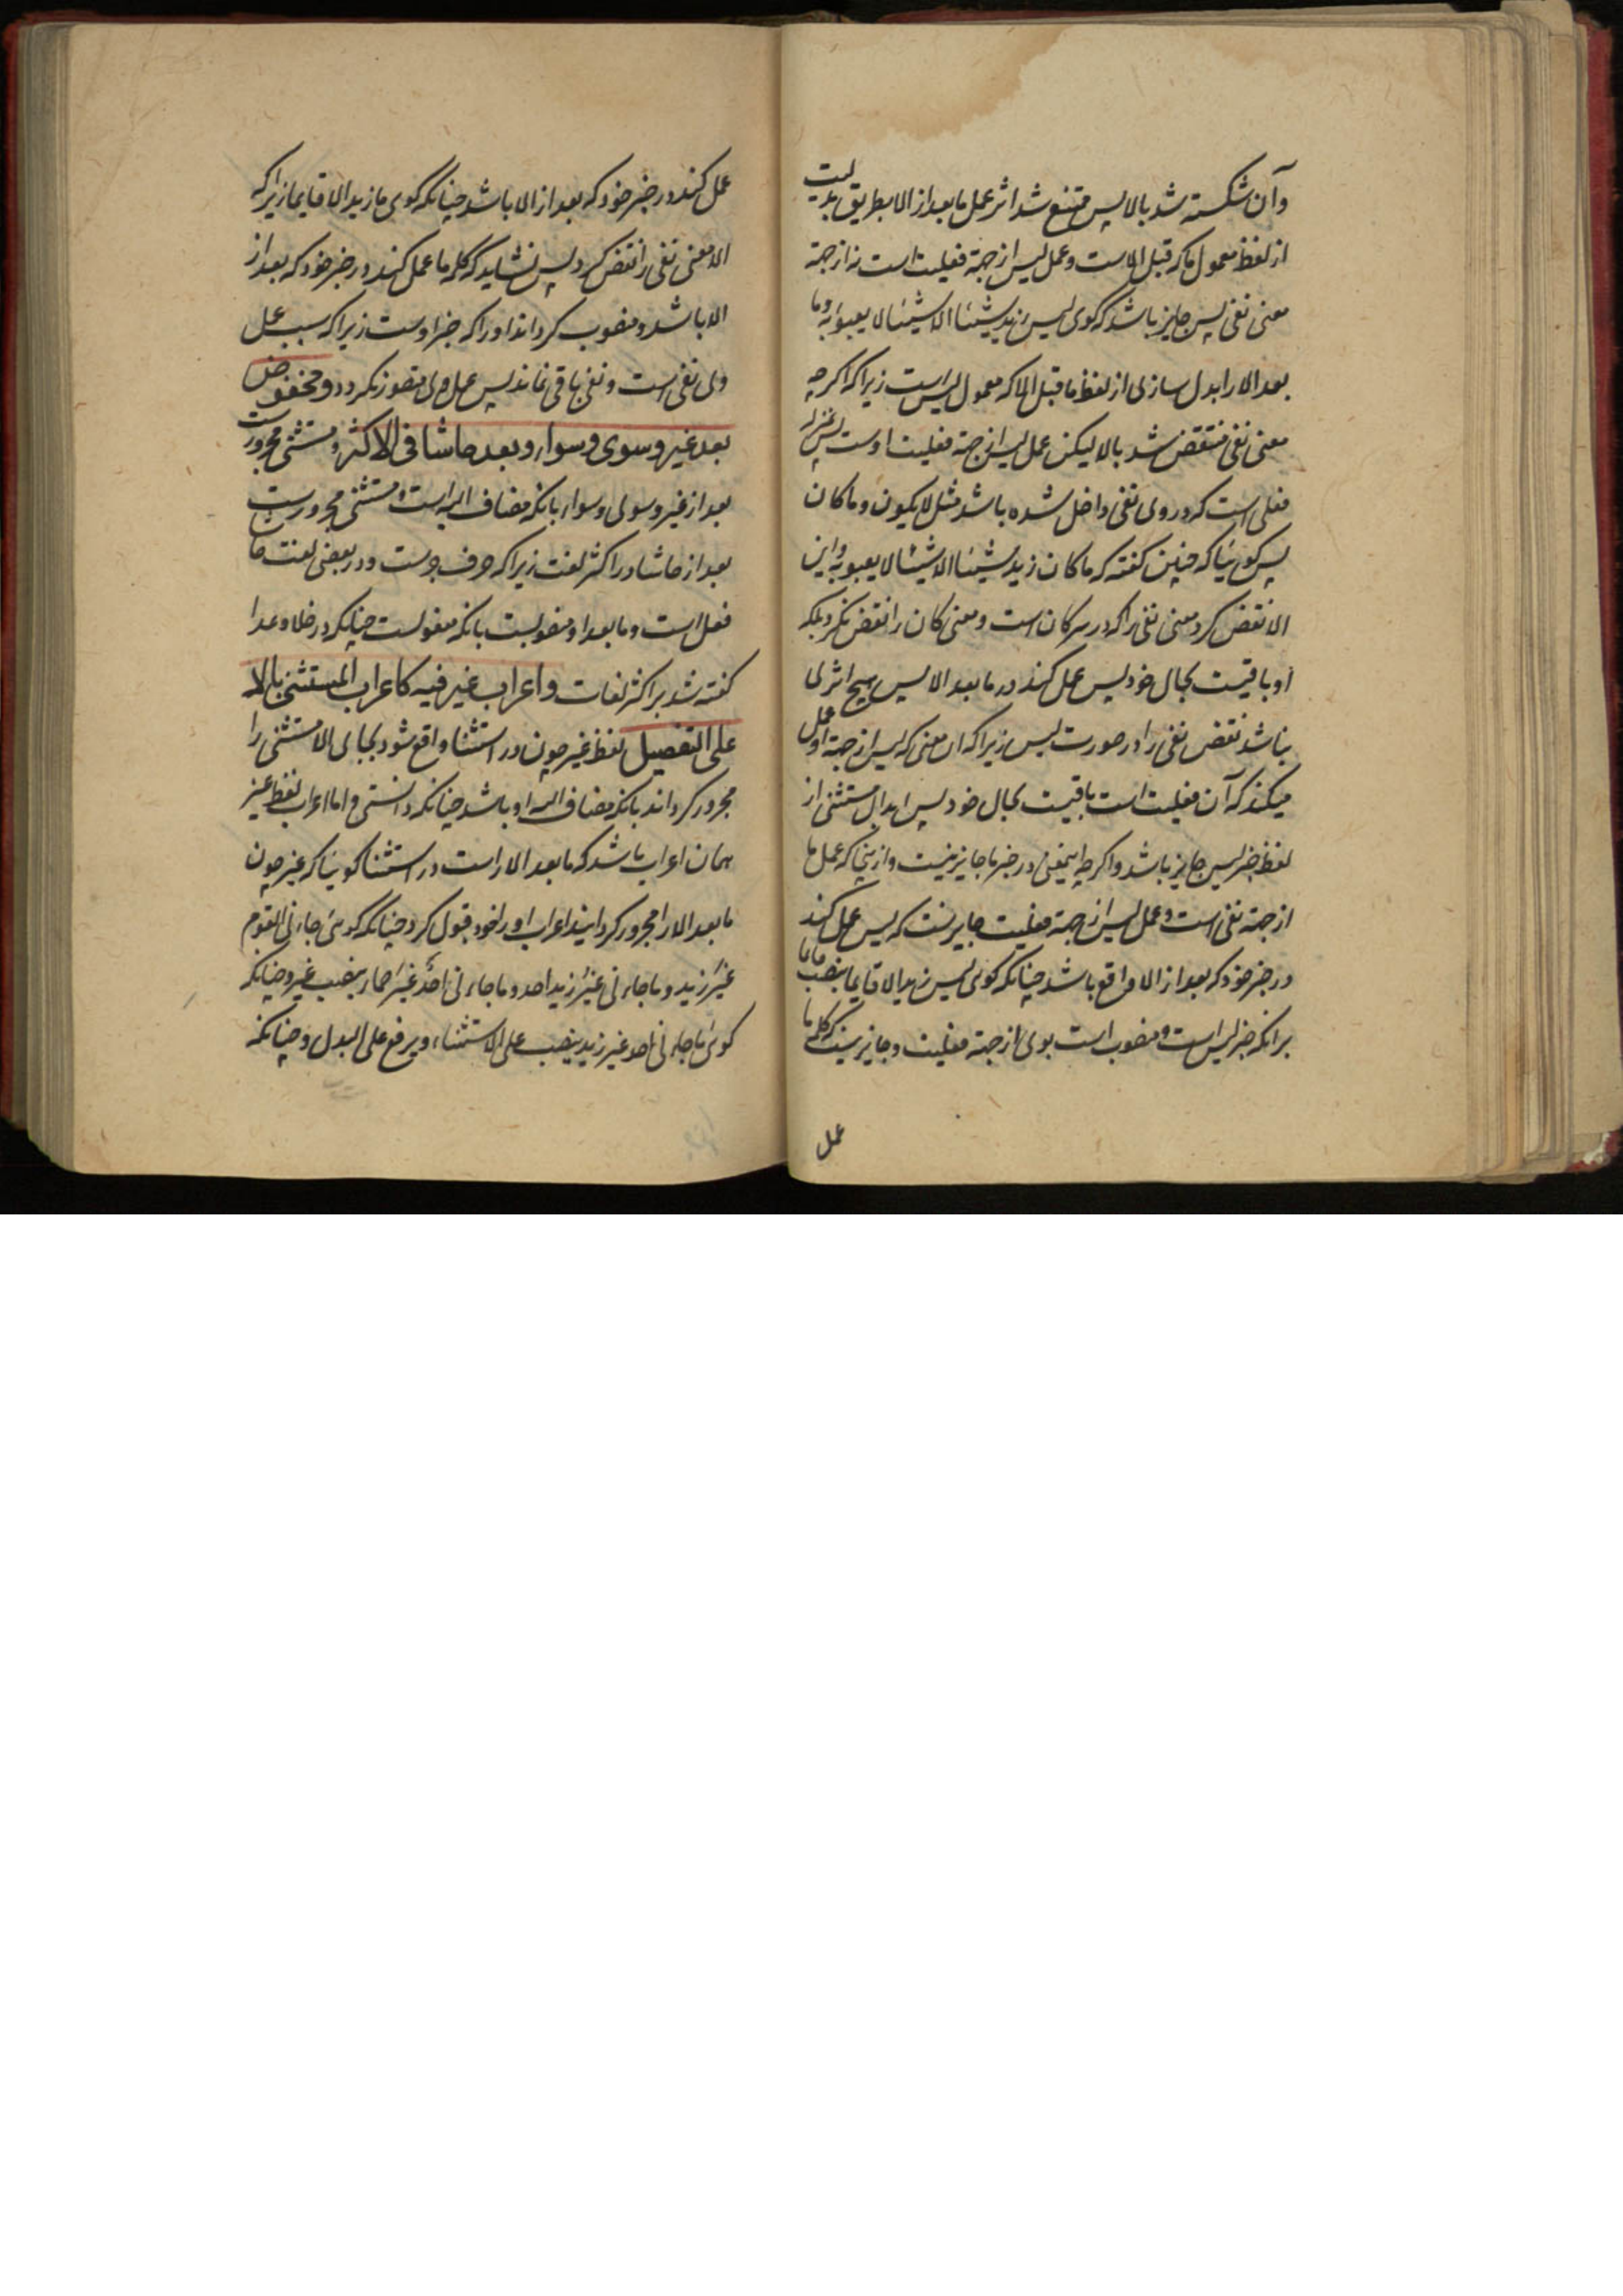 وآن شکسته شد بالا پس ممتنع شد اثر عمل مابعد از الا بطریق بدلیت
از لفظ معمول ما که قبل الاست و عمل لیس از جهة فعلیت است نه از جهة
معنی نفی پس جایز باشد که کوی لیس زید شیئا الا شیئا لا یعبؤ به و ما
بعد الا را بدل سازی از لفظ ماقبل الا که معمول لیس است زیرا که اکرچه
معنی نفی منتقض شد بالا لیکن عمل لیس از جهة فعلیت اوست پس بمنزله
فعلی است که در وی نفی داخل شده باشد مثل لایکون و ماکان
پس کوئیا که چنین کفته که ماکان زید شیئا الا شیئا لا یعبؤ به و این
الا نقض کرد معنی نفی را که در سر کان است و معنی کان را نقض نکرد بلکه
او باقیست بحال خود پس عمل کند در مابعد الا پس هیچ اثری
نباشد نقض نفی را در صورت لیس زیرا که ان معنی که لیس از جهة او عمل
میکند که آن فعلیت است باقیست بحال خود پس ابدال مستثنی از
لفظ خبر لیس جایز باشد و اکرچه اینمعنی در خبر ما جایز نیست و از ینجا که عمل ما
از جهة نفی است و عمل لیس از جهة فعلیت جایز است که لیس عمل کند
در خبر خود که بعد از الا واقع باشد چنانکه کوی لیس زید الا قایما بنصب قایما
برانکه خبر لیس است و منصوب است بوی از جهة فعلیت و جایز نیست که کلمه ما
عمل
عمل کند در خبر خود که بعد از الا باشد چنانکه کوی ما زید الا قایما زیرا که
الا معنی نفی را نقض کرد پس نشاید که کلمه ما عمل کند در خبر خود که بعد از
الا باشد و منصوب کرداند او را که خبر اوست زیرا که سبب عمل
وی نفی است و نفی باقی نماند پس عمل وی متصور نکردد و مخفوض
بعد غیر و سوی و سواء و بعد حاشا فی الاکثر و مستثنی مجرورست
بعد از غیر و سوی و سواء بانکه مضاف الیه است و مستثنی مجرورست
بعد از حاشا در اکثر لغت زیرا که حرف جرست و در بعضی لغت حاشا
فعل است و مابعد او منصوبست بانکه مفعولست چنانکه در خلا و عدا
کفته شد بر اکثر لغات و اعراب غیر فیه کاعراب المستثنی بالا
علی التفصیل لفظ غیر چون در استثنا واقع شود بجای الا مستثنی را
مجرور کرداند بانکه مضاف الیه او باشد چنانکه دانستی و اما اعراب لفظ غیر
همان اعراب باشد که مابعد الا راست در استثنا کوئیا که غیر چون
مابعد الا را مجرور کردانید اعراب او را خود قبول کرد چنانکه کوئی جاءنی القوم
غیر زید و ما جاءنی غیر زید احد و ما جاءنی احد غیر حمار بنصب غیر و چنانکه
کوئی ما جاءنی احد غیر زید بنصب علی الاستثناء و برفع علی البدل و چنانکه